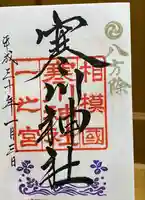 八方除
相模國
寒川神社
一之宮
平成三十年一月三日